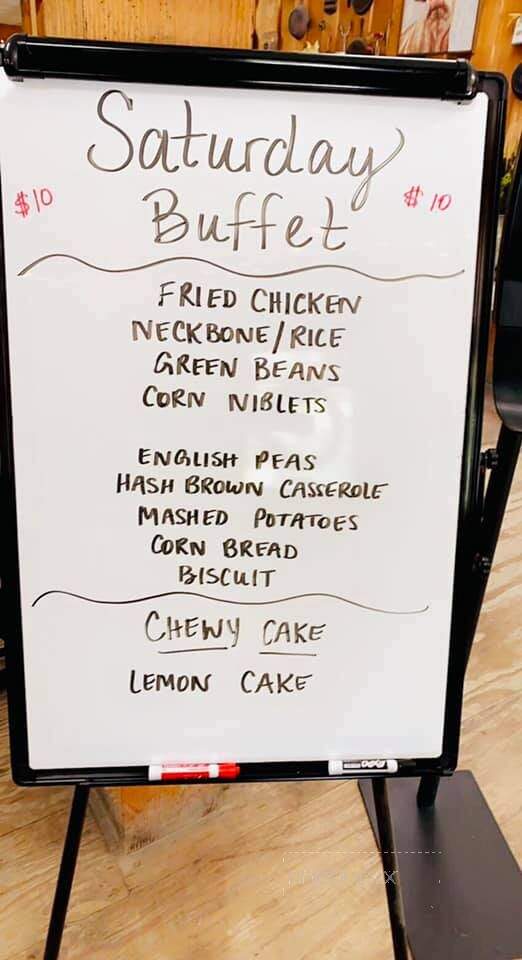 Saturday
$10 Buffet $10
FRIED CHICKEN
NECKBONE/RICE
GREEN BEANS
CORN NIBLETS
ENGLISH PEAS
HASH BROWN CASSEROLE
MASHED POTATOES
CORN BREAD
BISCUIT
CHEWY CAKE
LEMON CAKE